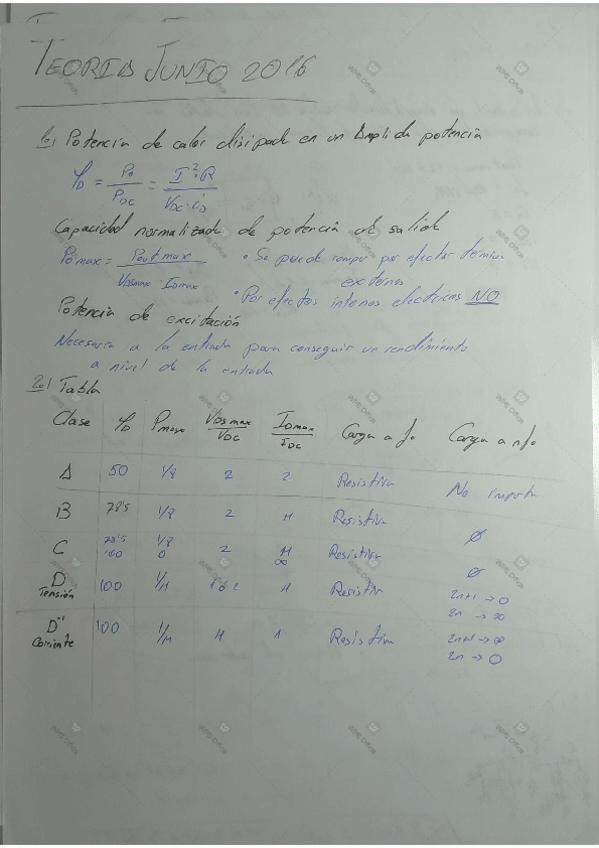 TEORIA JUNIO 2016
1o) Potencia de calor disipada en un Ampli de potencia
η_D = Po / P_DC = I²·R / V_DC·i_D
Capacidad normalizada de potencia de salida
Pomax = Pout max / V_DSmax · I_Dmax
• Se puede romper por efectos termicos externos
• Por efectos internos electricos NO
Potencia de excitación
Necesaria a la entrada para conseguir un rendimiento
a nivel de la entrada
2o) Tabla
Clase η_D Pmax V_DSmax/V_DC I_Dmax/I_DC Carga a fo Carga a nfo
A 50 1/8 2 2 Resistiva No importa
B 78'5 1/8 2 π Resistiva ∅
C 78'5 100 1/8 0 2 π ∞ Resistiva ∅
D Tensión 100 1/π 1 ó 2 π Resistiva 2n+1 → 0
2n → ∞
D" Corriente 100 1/π π 1 Resistiva 2n+1 → ∞
2n → 0
WPS Office